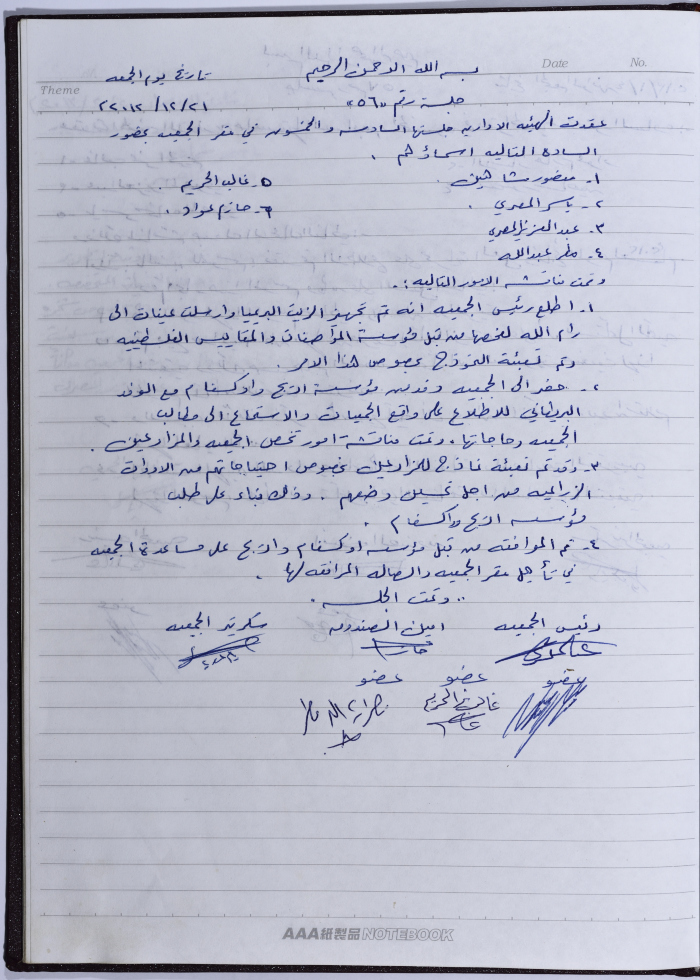 بسم الله الرحمن الرحيم
تاريخ يوم الجمعه
Date
No.
Theme
جلسة رقم «٥٦»
٢٠١٢/١٢/٢١
عقدت الهيئه الاداريه جلستها السادسه والخمسون في مقر الجمعيه بحضور
الساده التاليه اسماؤهم .
١- منصور شاهين .
٥- غالب الحريم .
٢- ياسر المصري .
٦- حازم عواد .
٣- عبد العزيز المصري
٤- مطر عبدالله
وتمت مناقشه الامور التاليه :.
١- اطلع رئيس الجمعيه انه تم تجهيز الزيت وارسلت عينات الى
رام الله لفحصها من قبل مؤسسة المواصفات والمقاييس الفلسطينيه
وتم تعبئة النموذج بخصوص هذا الامر .
٢- حضر الى الجمعيه وفد من مؤسسة الاربج واوكسفام مع الوفد
البريطاني للاطلاع على واقع الجمعيات والاستماع الى مطالب
الجمعيه وحاجاتها . وتمت مناقشة امور تخص الجمعيه والمزارعين .
٣- وقد تم تعبئة نماذج للمزارعين بخصوص احتياجاتهم من الادوات
الزراعيه من اجل تحسين وضعهم . وذلك بناء على طلب
مؤسسه الاربج واكسفام .
٤- تم الموافقه من قبل مؤسسه اوكسفام والاربج على مساعدة الجمعيه
في تأهيل مقر الجمعيه والصاله المرافقه لها .
.. وتمت الجلسه .
رئيس الجمعيه
امين الصندوق
سكرتير الجمعيه
عضو
عضو
عضو
غالب الحريم
AAA紙製品 NOTEBOOK